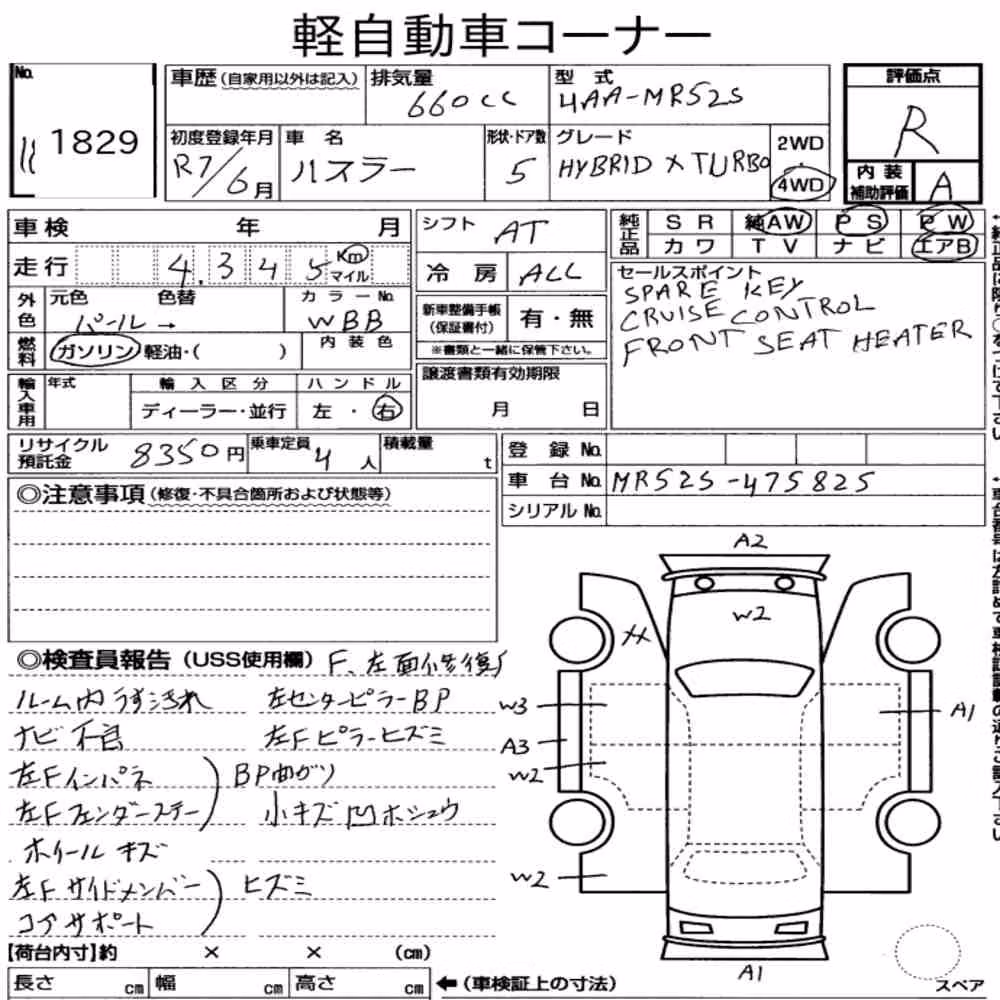 軽自動車コーナー
No. 1829
車歴 (自家用以外は記入)
排気量 660cc
型式 4AA-MR52S
評価点 R
初度登録年月 R7/6月
車名 ハスラー
形状・ドア数 5
グレード HYBRID X TURBO
2WD
4WD
内装補助評価 A
車検 年 月
シフト AT
純正品 SR 純AW PS PW
カワ TV ナビ エアB
走行 4.345 Km マイル
冷房 ALL
セールスポイント
SPARE KEY
CRUISE CONTROL
FRONT SEAT HEATER
外色 元色 色替 パール→
カラーNo. WBB
新車整備手帳(保証書付) 有・無
※書類と一緒に保管下さい。
燃料 ガソリン 軽油・( )
内装色
譲渡書類有効期限
月 日
輸入車用 年式 輸入区分 ハンドル
ディーラー・並行 左・右
リサイクル預託金 8350円
乗車定員 4人
積載量 t
登録No.
車台No. MR52S-475825
シリアルNo.
◎注意事項 (修復・不具合箇所および状態等)
◎検査員報告 (USS使用欄) F、左面修復
ルーム内うす汚れ 左センターピラーBP
ナビ不良 左Fピラーヒズミ
左Fインパネ BP曲がり
左Fフェンダーステー 小キズ凹ホシュウ
ホイールキズ
左Fサイドメンバー ヒズミ
コアサポート
A2
W2
W3
A1
A3
W2
W2
A1
【荷台内寸】約 × × (cm)
長さ cm 幅 cm 高さ cm
←(車検証上の寸法)
スペア